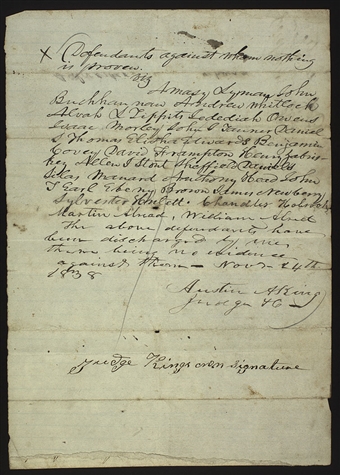 X (Defendants against whom nothing
is proven.
viz
Amasy Lyman John
Buckhannan Andrew Whitlock
Alvah L Tippits Jedediah Owens
Isaac Morley John J Tanner Daniel
S Thomas Elisha Edwards Benjamin
Covey David Frampton Henry
Allen J Stout Sheffield Daniels
Silas Manard Anthony Head John
T Earl Ebeny Brown James Newberry
Sylvester Hulett. Chandler
Martin Alred, William Alred
The above defendants have
been discharged by me,
there being no evidence
against them — Novr 24th
1838
Austin A King
Judge &C —
Judge Kings own signature